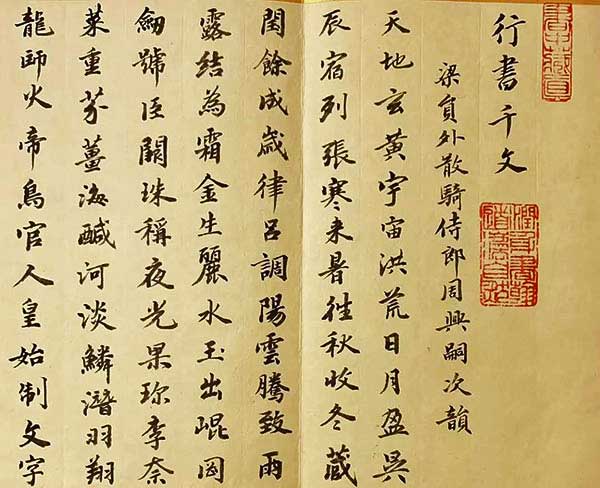 行書千文
梁貟外散騎侍郎周興嗣次韻
天地玄黃宇宙洪荒日月盈昃
辰宿列張寒来暑往秋收冬藏
閏餘成歲律呂調陽雲騰致雨
露結為霜金生麗水玉出崐岡
劒號巨闕珠稱夜光果珎李柰
菜重芥薑海醎河淡鱗潛羽翔
龍師火帝鳥官人皇始制文字